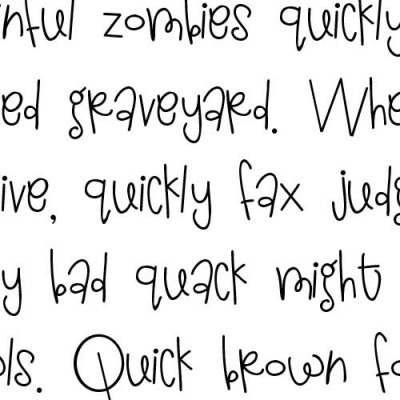 nful zombies quickly
ed graveyard. Whe
ive, quickly fax judg
y bad quack might
ols. Quick brown fo